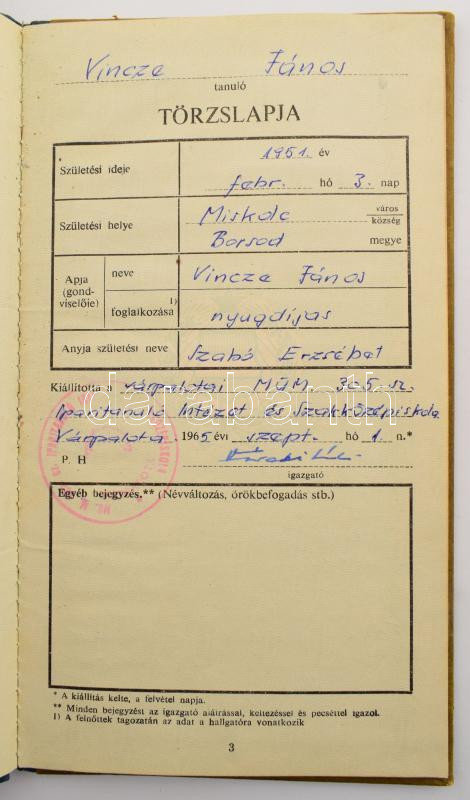 Vincze János
tanuló
TÖRZSLAPJA
Születési ideje
1951. év
febr. hó 3. nap
Születési helye
Miskolc város
község
Borsod megye
Apja (gondviselője)
neve
Vincze János
1) foglalkozása
nyugdíjas
Anyja születési neve
Szabó Erzsébet
Kiállította a várpalotai MÜM. 305. sz.
Iparitanuló Intézet és Szakközépiskola
Várpalota. 1965 évi szept. hó 1. n.*
P. H
igazgató
Egyéb bejegyzés.** (Névváltozás, örökbefogadás stb.)
darabanth
* A kiállítás kelte, a felvétel napja.
** Minden bejegyzést az igazgató aláírással, keltezéssel és pecséttel igazol.
1) A felnőttek tagozatán az adat a hallgatóra vonatkozik
3